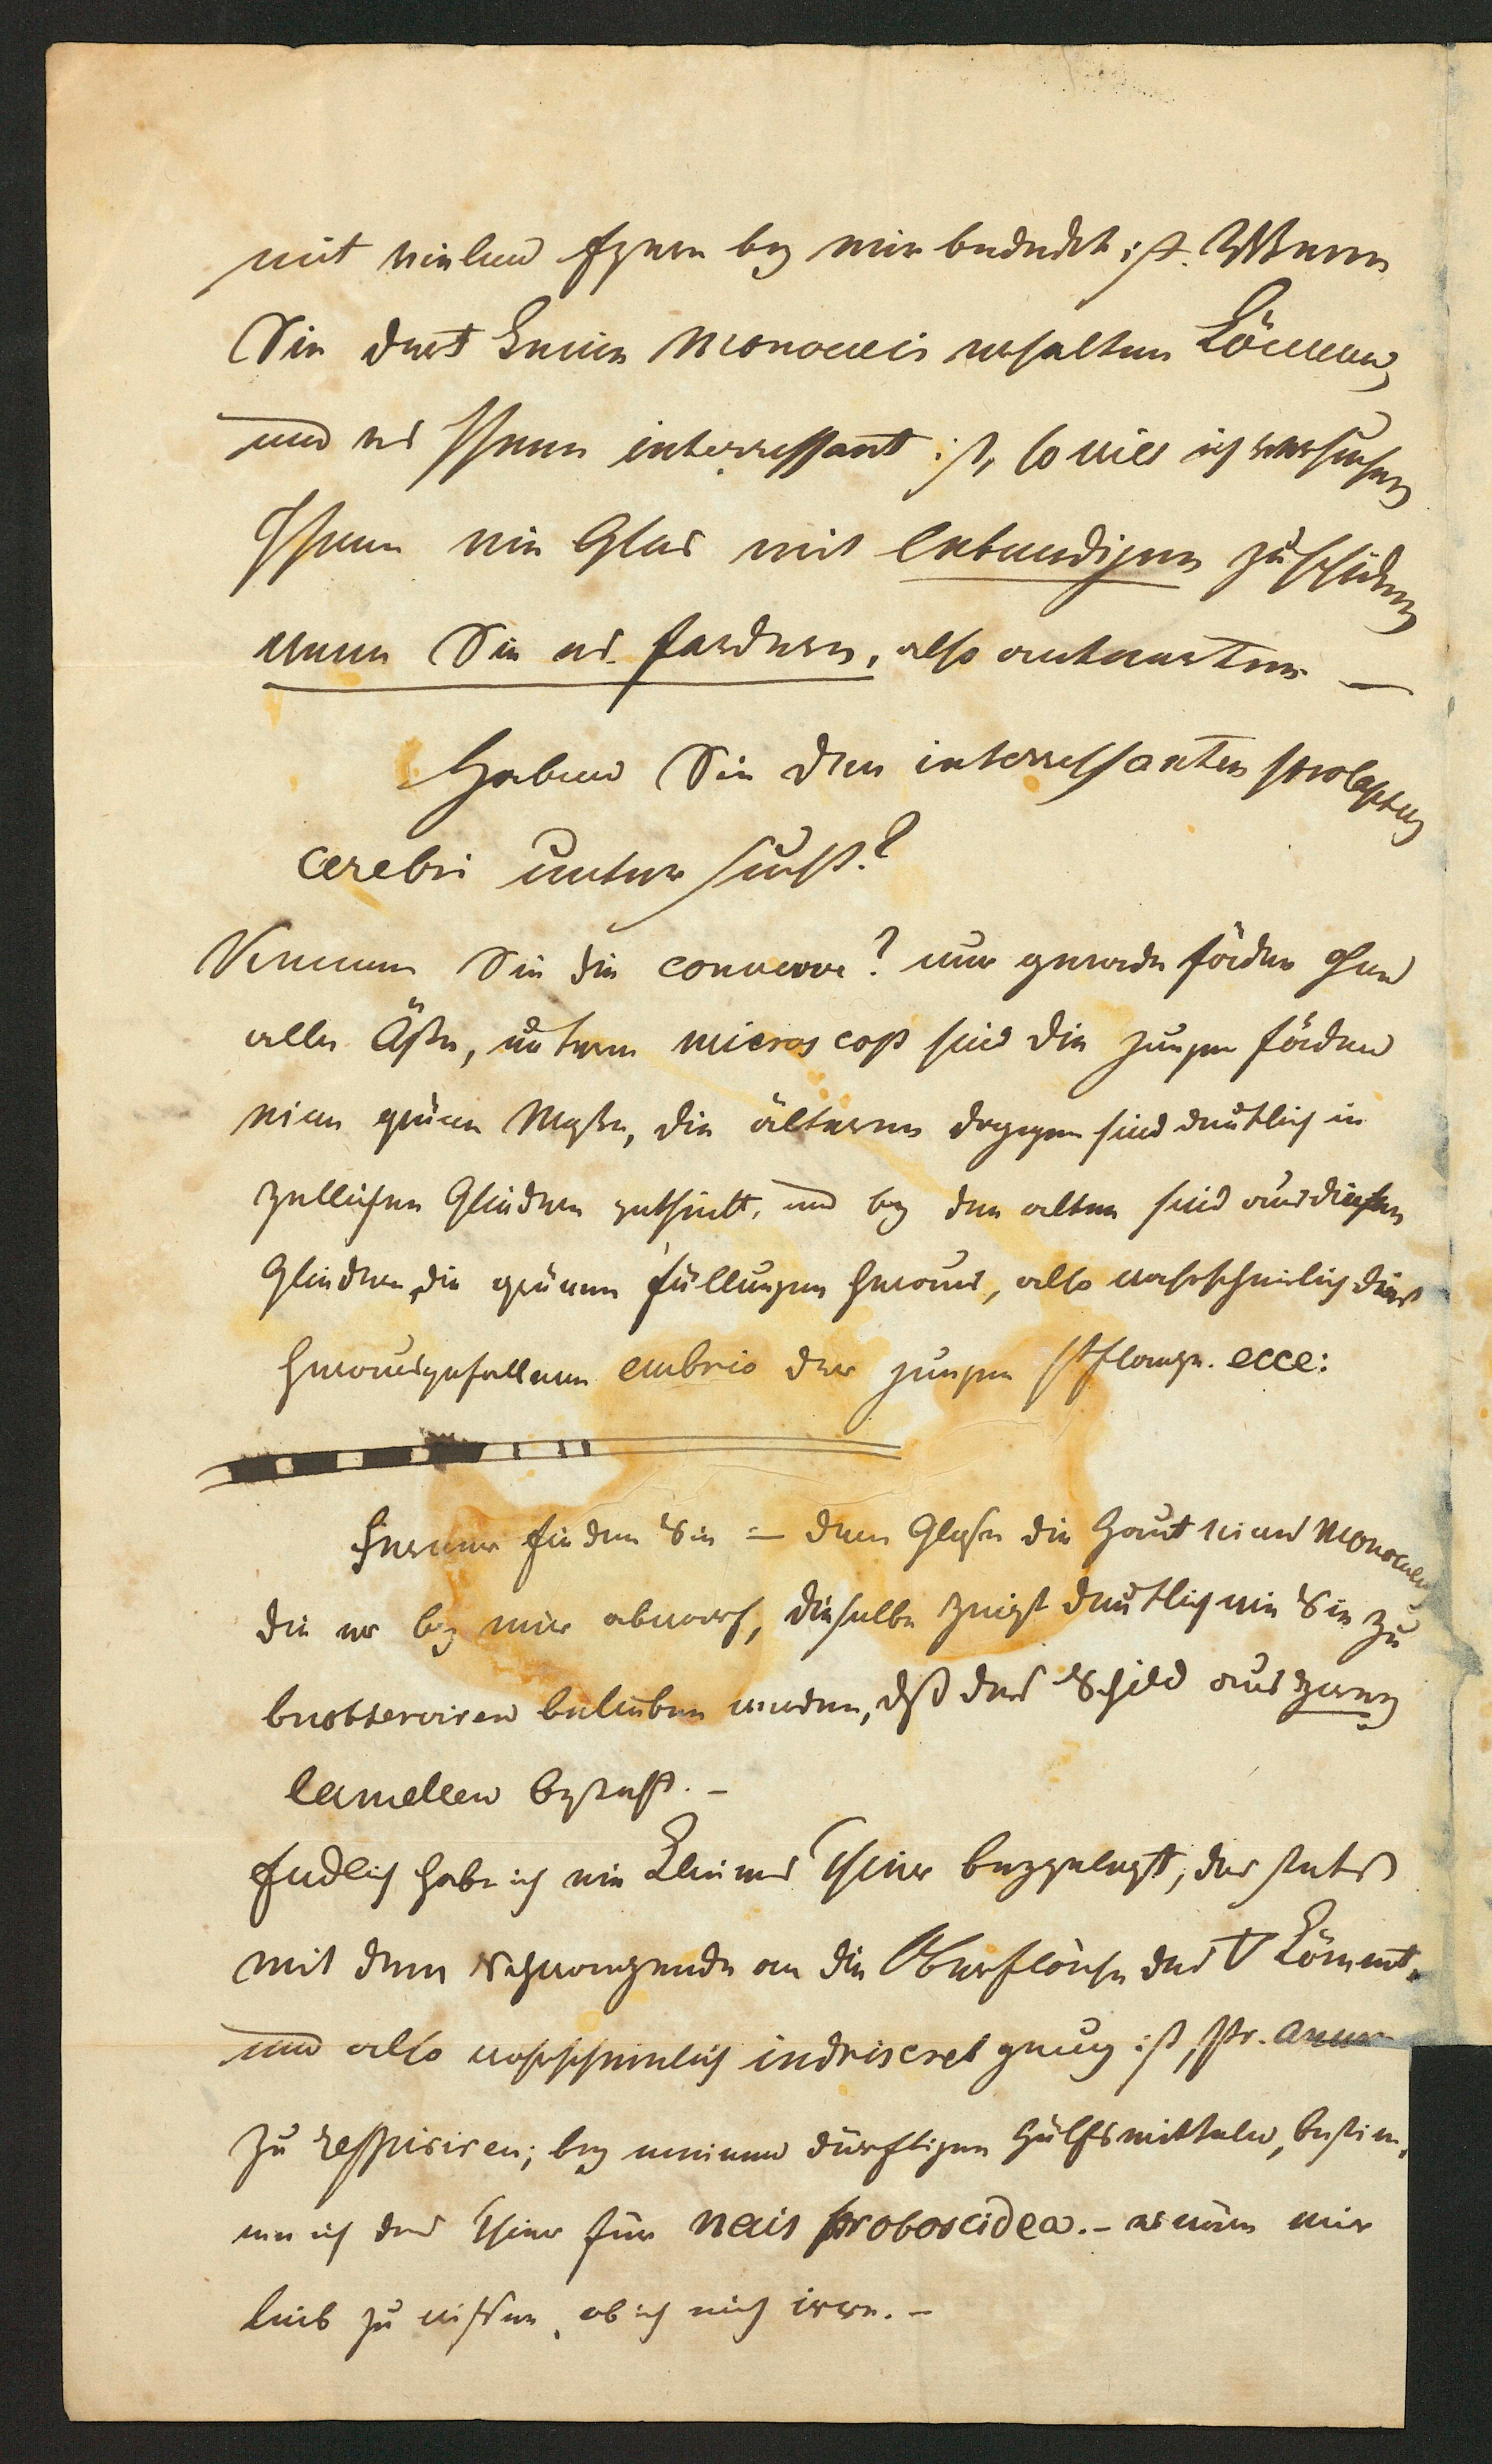 mit vielen Eyern bey mir bedeckt ist. Wenn
Sie dort keine Monoculi erhalten können,
und es Ihnen interressant ist, so will ich versuchen
Ihnen ein Glas mit lebendigen zu schicken
wenn Sie es fordern, also antworten —
Haben Sie den interressanten prolapsus
cerebri untersucht?
Kennen Sie die converve? nur gerade fäden ohne
alle Äste, unterm microscop sind die jungen fäden
eine grüne Masse, die älteren dagegen sind deutlich in
zellichen Gliedern getheilt, und bey den alten sind aus diesen
Gliedern die grünen füllungen heraus, also wahrscheinlich dies
herausgefallene embrio der jungen Pflanze. ecce:
Ferner finden Sie = dem Glase die Haut eines Monoculus
die er bey mir abwarf, dieselbe zeigt deutlich wie Sie zu
beobserviren belieben werden, dß das Schild aus zween
lamellen besteht. –
Endlich habe ich ein kleines Thier beygelegt, das stets
mit dem Schwanzende an die Oberfläche des kömmt,
und also wahrscheinlich indriscret genug ist, pr. anum
zu respiriren; bey meinen dürftigen Hülfsmitteln, bestim,
me ich das Thier für Nais proboscidea. – es wäre mir
lieb zu wissen, ob ich mich irre. –